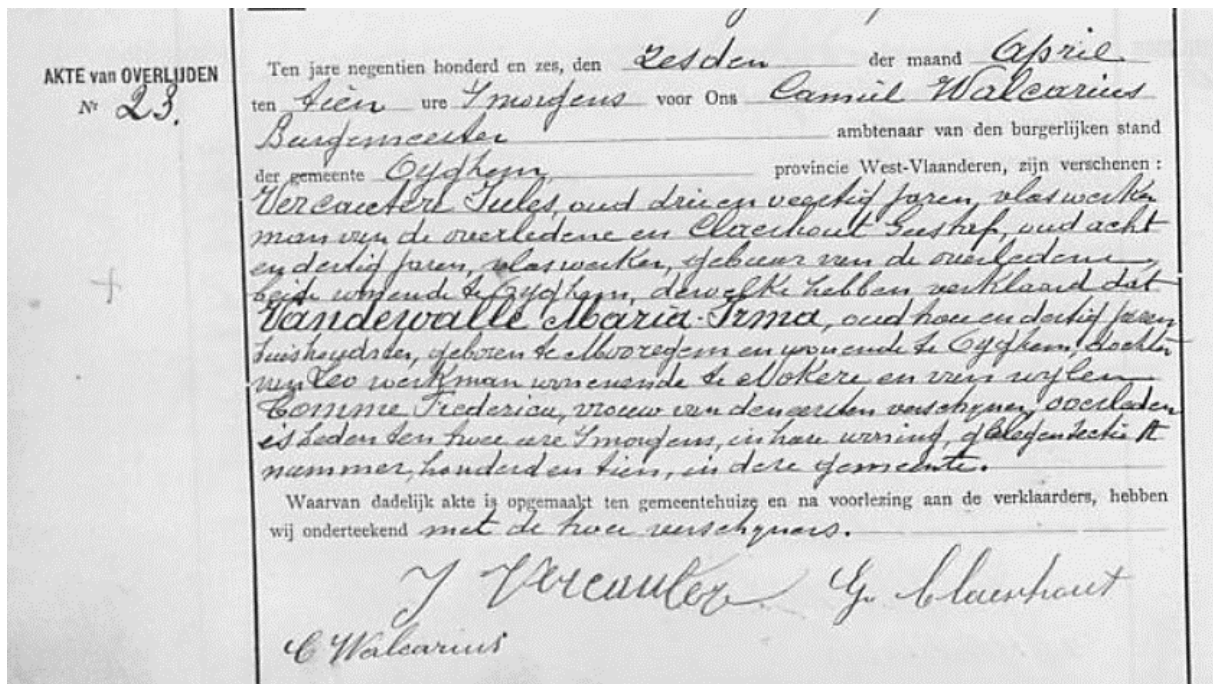 AKTE van OVERLIJDEN
Nr 23.
Ten jare negentien honderd en zes, den zesden der maand April
ten tien ure 's morgens voor Ons Camiel Walcarius
Burgemeester ambtenaar van den burgerlijken stand
der gemeente Oyghem, provincie West-Vlaanderen, zijn verschenen :
Vercautere Jules, oud drie en veertig jaren, vlaswerker
man van de overledene en Claerhout Gustaf, oud acht
en dertig jaren, vlaswerker, gebuur van de overledene,
beide wonende te Oyghem, dewelke hebben verklaard dat
Vandewalle Maria-Irma, oud twee en dertig jaren
huishoudster, geboren te Mooregem en wonende te Oyghem, dochter
van Leo werkman wonende te Nokere en van wylen
Comme Frederica, vrouw van den eersten verschyner, overleden
is heden ten twee ure 's morgens, in hare woning, gelegen sectie A
nummer, honderd en tien, in deze gemeente.
Waarvan dadelijk akte is opgemaakt ten gemeentehuize en na voorlezing aan de verklaarders, hebben
wij onderteekend met de twee verschyners.
J Vercauter G. Claerhout
C Walcarius